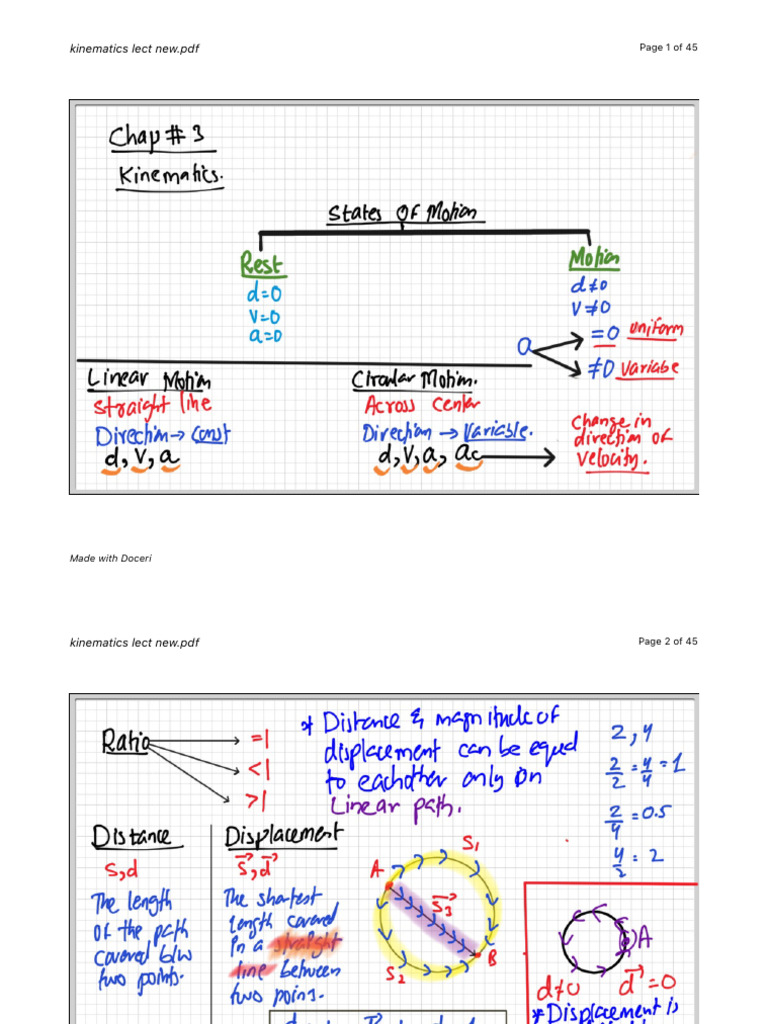 kinematics lect new.pdf
Page 1 of 45
Chap # 3
Kinematics.
States Of Motion
Rest
d=0
v=0
a=0
Motion
d≠0
v≠0
a
=0 uniform
≠0 variabe
Linear Motion
Straight line
Direction → Const
d, v, a
Circular Motion.
Across Center
Direction → Variable.
d, v, a, ac
Change in
direction of
velocity.
Made with Doceri
kinematics lect new.pdf
Page 2 of 45
Ratio
=1
<1
>1
* Distance & magnitude of
displacement can be equal
to eachother only on
Linear path.
2, 4
2/2 = 4/4 = 1
2/4 = 0.5
4/2 = 2
Distance
S, d
The length
Of the path
covered b/w
two points.
Displacement
S⃗, d⃗
The shortest
length covered
in a straight
line between
two poins.
A
S₁
S⃗₃
S₂
B
A
d≠0
d⃗=0
* Displacement is